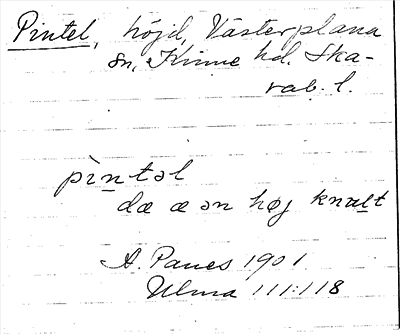 Pintel, höjd, Västerplana
sn, Kinne hd. Ska-
rab. l.
pìntəl
dæ æ ən høj knalt
A. Panes 1901
Ulma 111:118